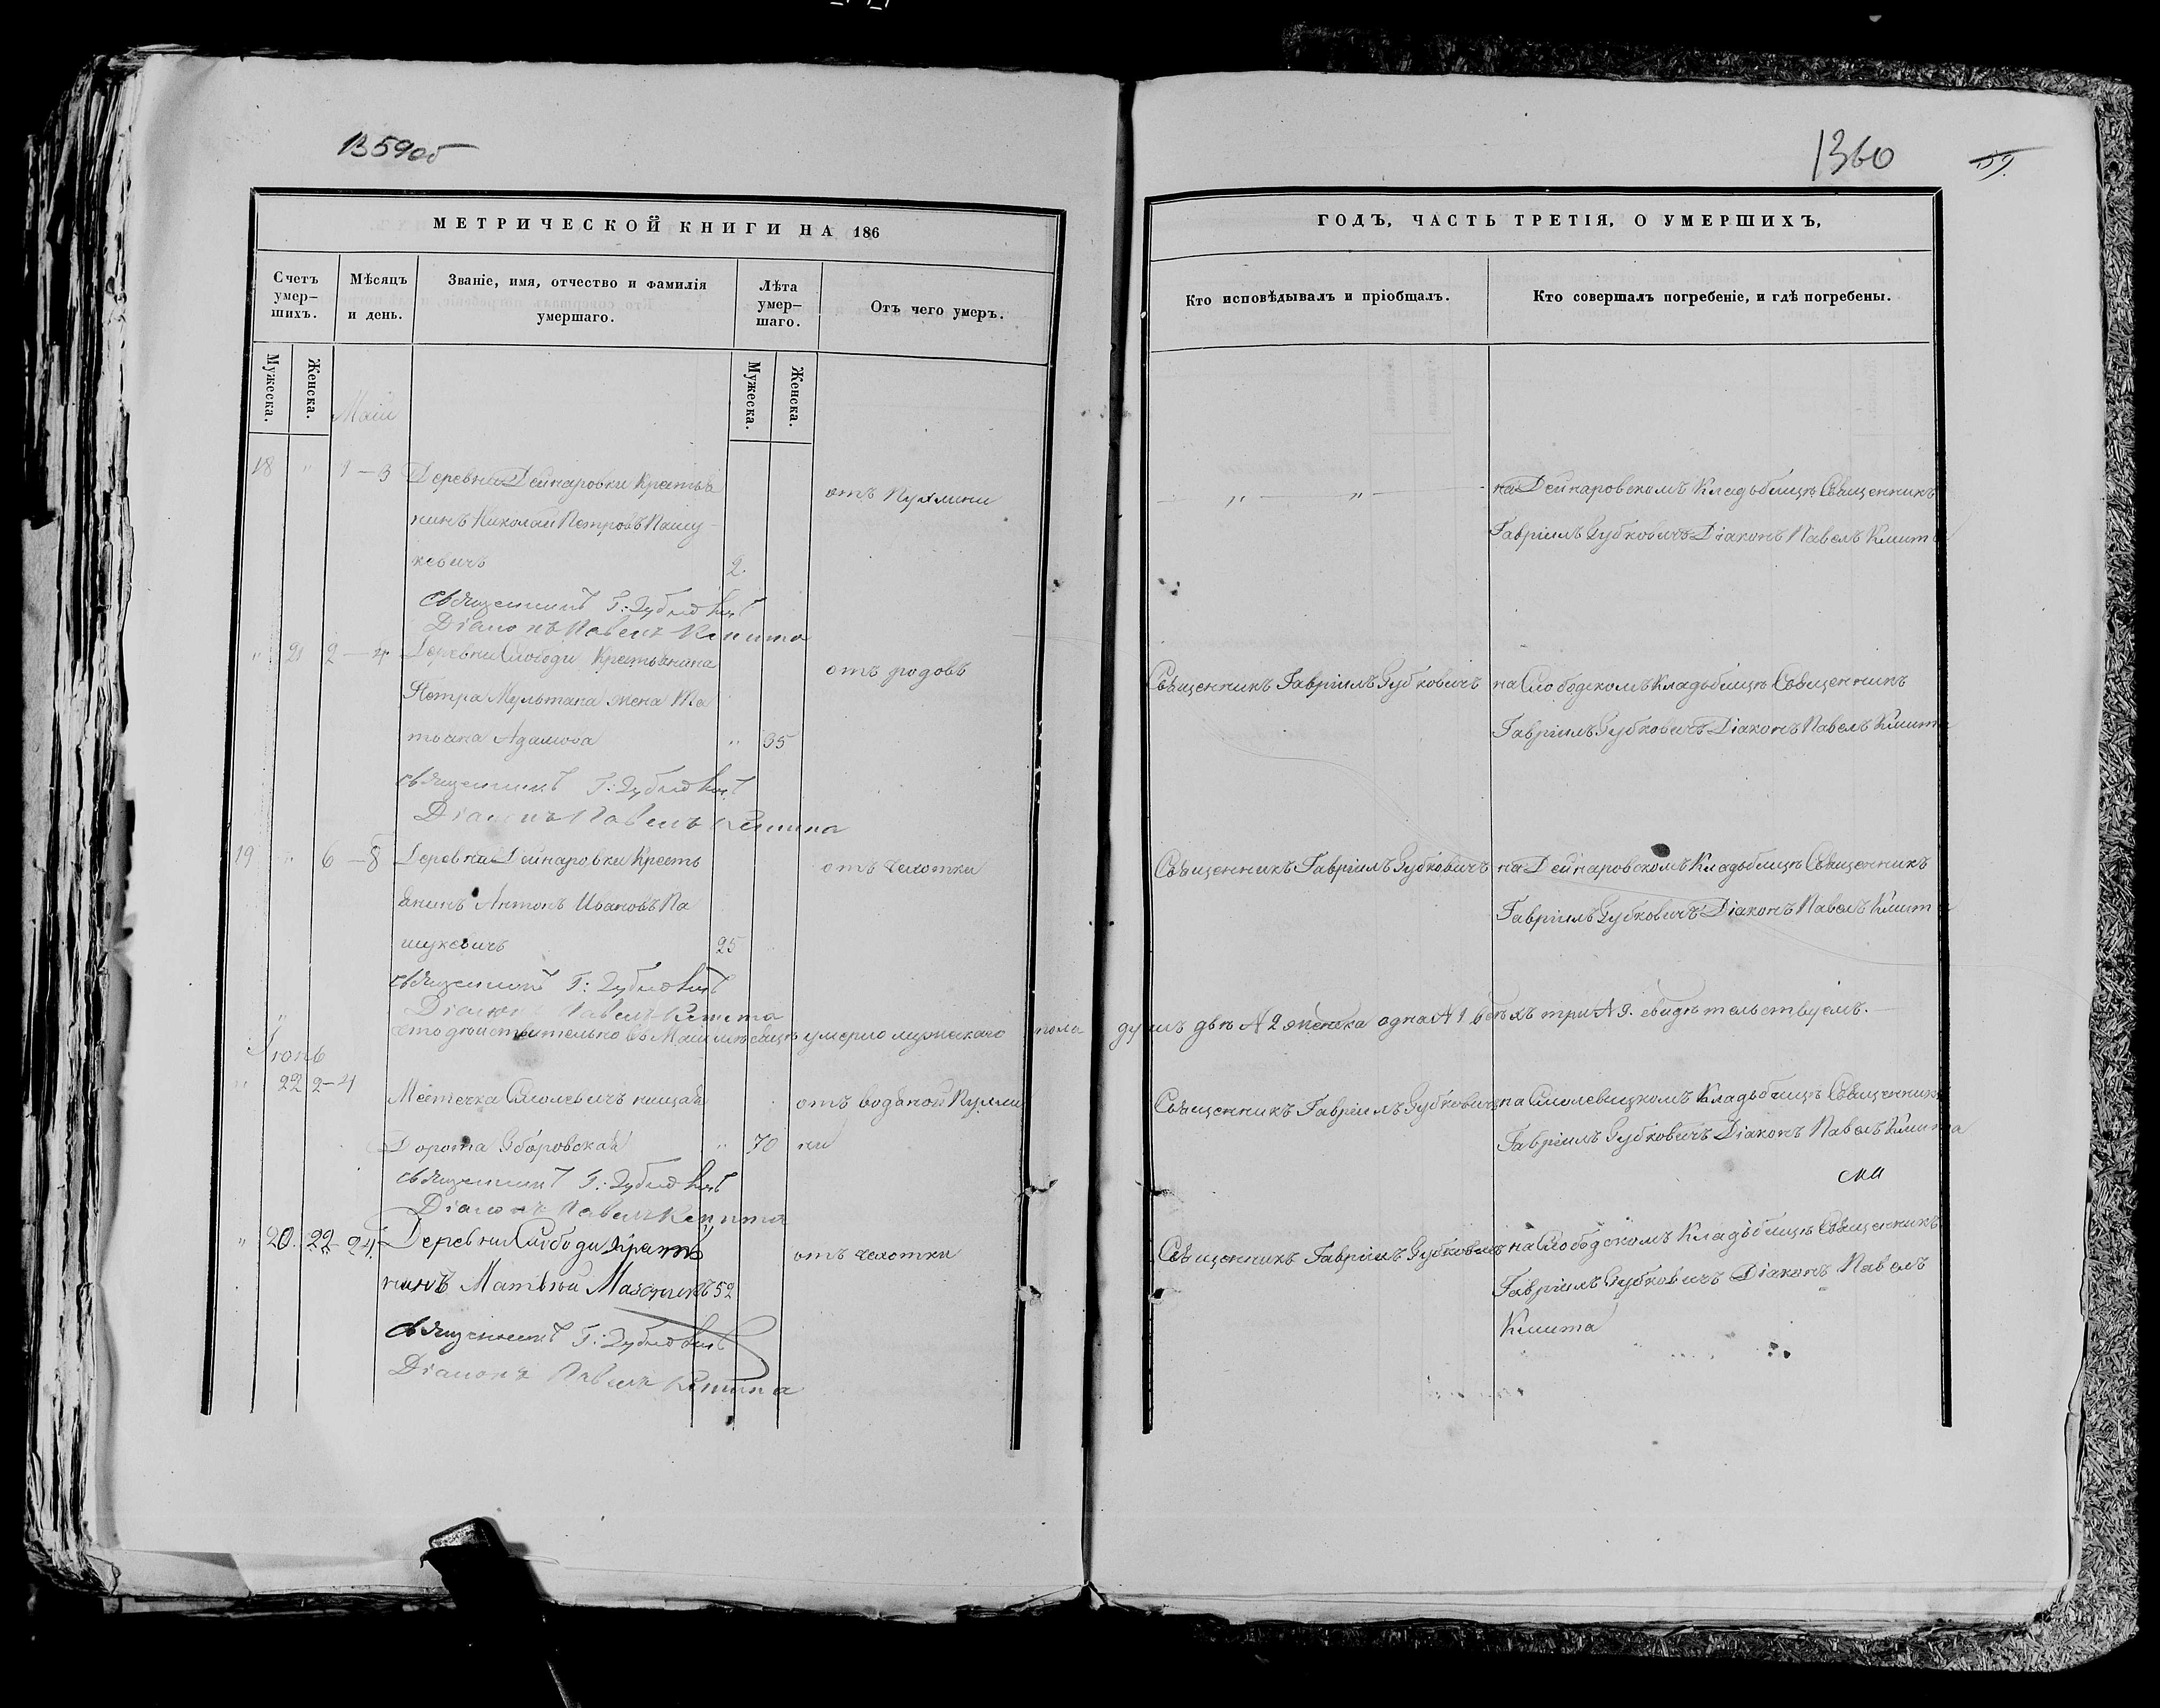 1359об
МЕТРИЧЕСКОЙ КНИГИ НА 186
Счетъ умер-шихъ.
Мѣсяцъ и день.
Званіе, имя, отчество и фамилія умершаго.
Лѣта умер-шаго.
Отъ чего умеръ.
Мужеска.
Женска.
Мужеска.
Женска.
Маій
18 " 1-3 Деревни Дейнаровки Крестья
отъ Пухлини
нинъ Николай Петровъ Пашу-
кевичъ 2.
Священникъ Г: Зубковичъ
Діаконъ Павелъ Кмита
" 21 2-4 Деревни Слободи Крестьянина
отъ родовъ
Петра Мультана жена Та
тьяна Адамова " 35
Священникъ Г: Зубковичъ
Діаконъ Павелъ Кмита
19 " 6-8 Деревни Дейнаровки Кресть
отъ чахотки
янинъ Антонъ Ивановъ Па
шукевичъ 25
Священникъ Г: Зубковичъ
Діаконъ Павелъ Кмита
Что дѣйствительно въ Маіи мѣсяцѣ умерло мужескаго пола душъ двѣ N 2 женска одна N 1 обоихъ три N 3. свидѣтельствуемъ.
Іюнь
" 22 2-4 Мѣстечка Смолевичъ нищая
отъ водяной Пухли
Дорота " 70 ни
Священникъ Г: Зубковичъ
Діаконъ Павелъ Кмита
" 20. 22-24 Деревни Слободи Крестья
отъ чахотки
нинъ Матвѣй 52
Священникъ Г: Зубковичъ
Діаконъ Павелъ Кмита
1360
59.
ГОДЪ, ЧАСТЬ ТРЕТІЯ, О УМЕРШИХЪ,
Кто исповѣдывалъ и пріобщалъ.
Кто совершалъ погребеніе, и гдѣ погребены.
" "
на Дейнаровскомъ Кладьбищѣ Священникъ
Гавріилъ Зубковичъ Діаконъ Павелъ Кмита
Священникъ Гавріилъ Зубковичъ
на Слободскомъ Кладьбищѣ Священникъ
Гавріилъ Зубковичъ Діаконъ Павелъ Кмита
Священникъ Гавріилъ Зубковичъ
на Дейнаровскомъ Кладьбищѣ Священникъ
Гавріилъ Зубковичъ Діаконъ Павелъ Кмита
Священникъ Гавріилъ Зубковичъ
на Смолевицкомъ Кладьбищѣ Священникъ
Гавріилъ Зубковичъ Діаконъ Павелъ Кмита
Священникъ Гавріилъ Зубковичъ
на Слободскомъ Кладьбищѣ Священникъ
Гавріилъ Зубковичъ Діаконъ Павелъ
Кмита